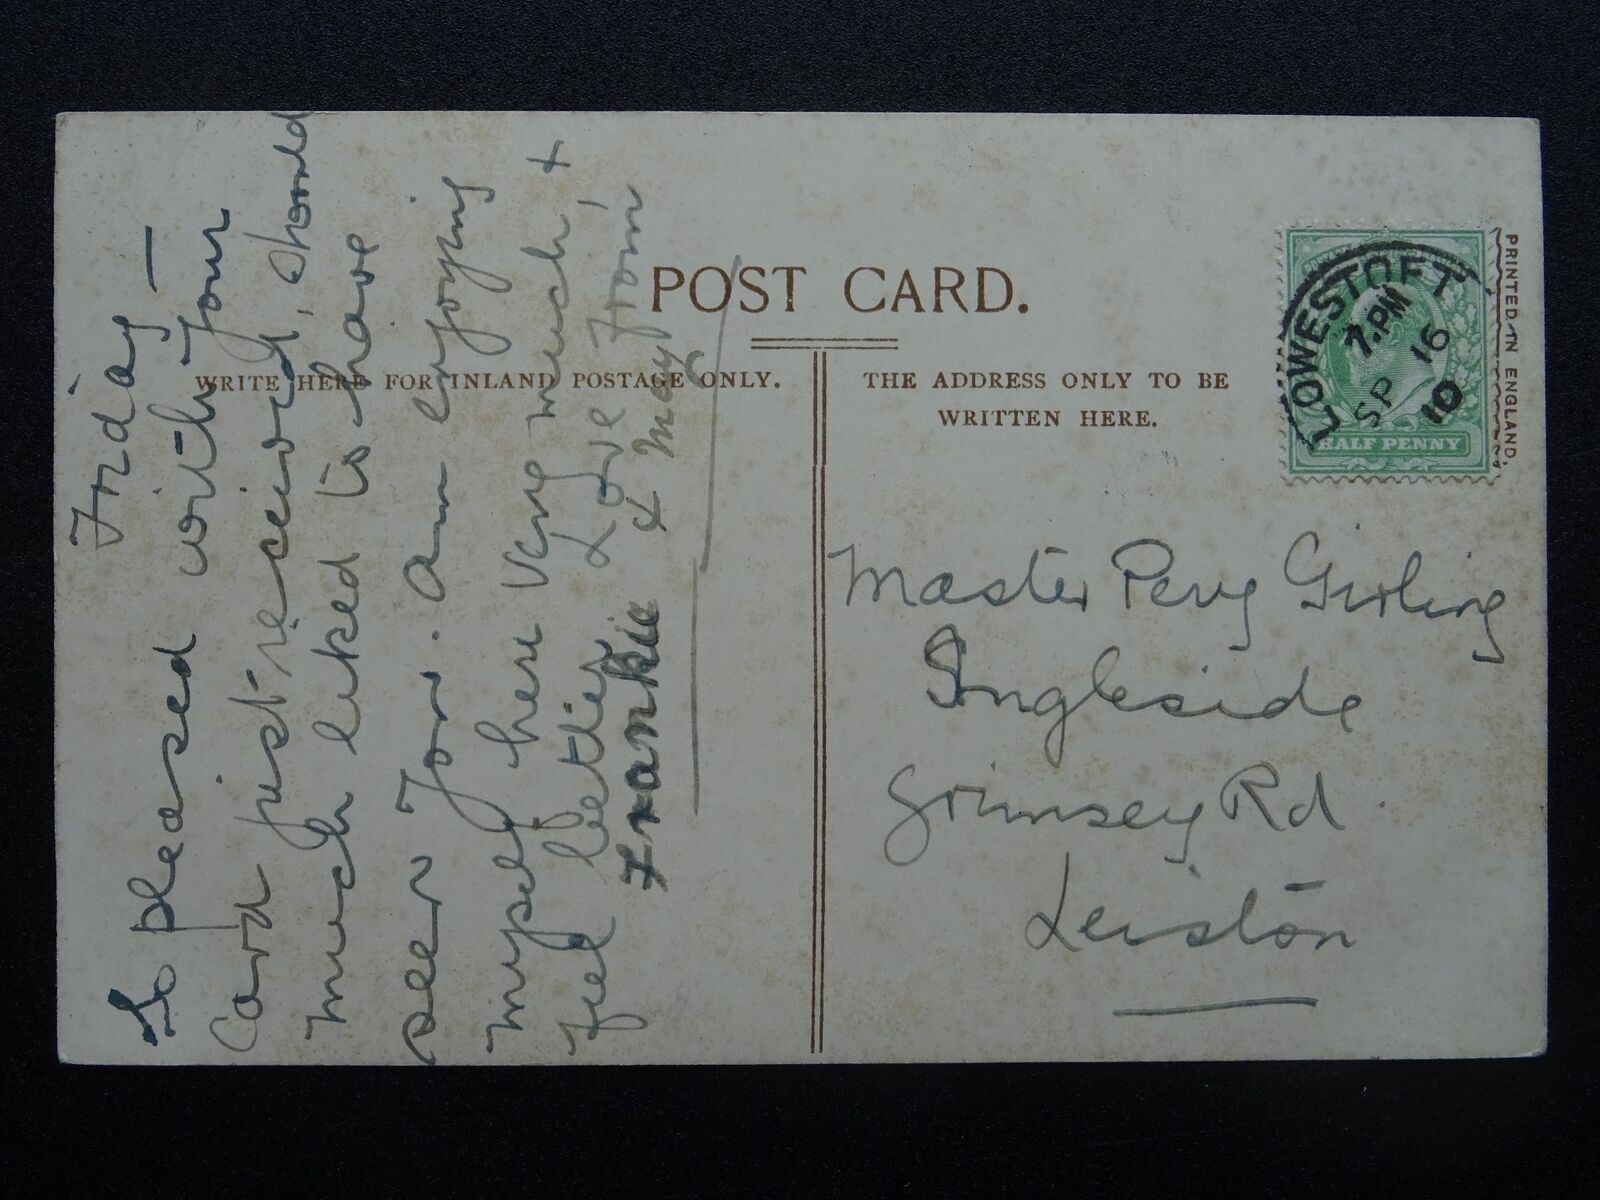 POST CARD.
WRITE HERE FOR INLAND POSTAGE ONLY.
THE ADDRESS ONLY TO BE
WRITTEN HERE.
PRINTED IN ENGLAND.
LOWESTOFT
7.PM
SP 16
10
HALF PENNY
Friday —
So pleased with your
Card just received, should
much liked to have
seen you. Am enjoying
myself here very much, +
feel better Love from
Frankie & May
Master Percy Girling
Ingleside
Grimsey Rd.
Leiston